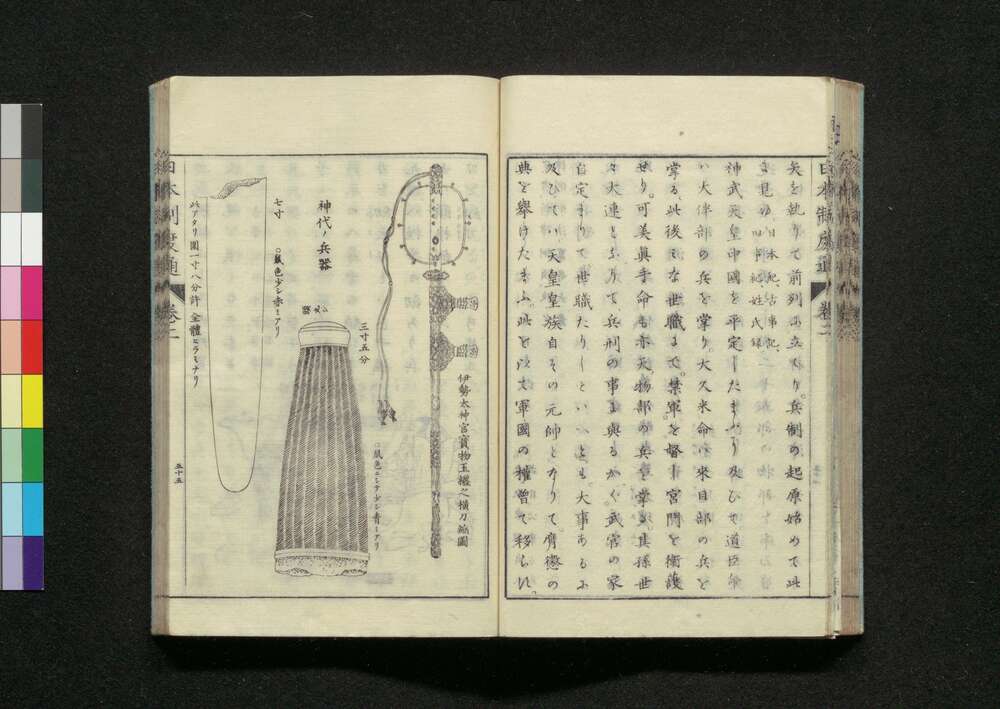 矢を執りて前列に立てり。兵制の起原始めて此
に見ゆ、日本紀、古事記、
舊事紀、姓氏録
神武天皇中國を平定したまふに及びて道臣命
い大伴部の兵を掌り。大久米命い來目部の兵を
掌る、此後みな世職にて。禁軍を督し宮門を衛護
せり。可美眞手命も亦天物部の兵を掌る。其孫世
々大連となりて、兵刑の事に與るかく武官の家
自定まりて世職たりしといへども。大事あるに
及びてい天皇皇族自その元帥となりて。膺懲の
典を擧げたまふ。此を以て軍國の權曾て移られ。
日本制度通
卷二
伊勢太神宮寶物玉纏之横刀縮圖
神代ノ兵器
三寸五分
鼠色ニシテ少シ青ミアリ
七寸
鼠色少シ赤ミアリ
此アタリ圍一寸八分許全體ヒラミナリ
日本制度通
卷二
五十五